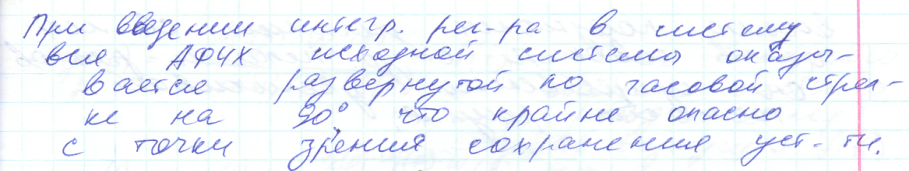 При введении интегр. рег-ра в систему
вся АФЧХ исходной системы оказы-
вается развернутой по часовой стрел-
ке на 90° что крайне опасно
с точки зрения сохранения уст-ти.